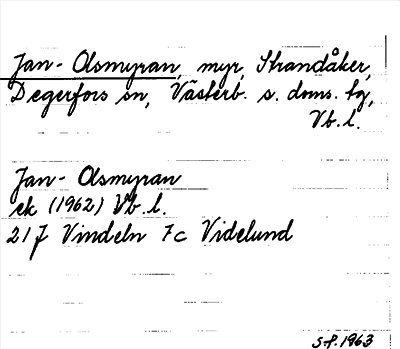 Jan-Olsmyran, myr, Strandåker,
Degerfors sn, Västerb. s. doms. tg,
Vb. l.
Jan-Olsmyran
ek (1962) Vb. l.
21J Vindeln 7c Videlund
S-f. 1963